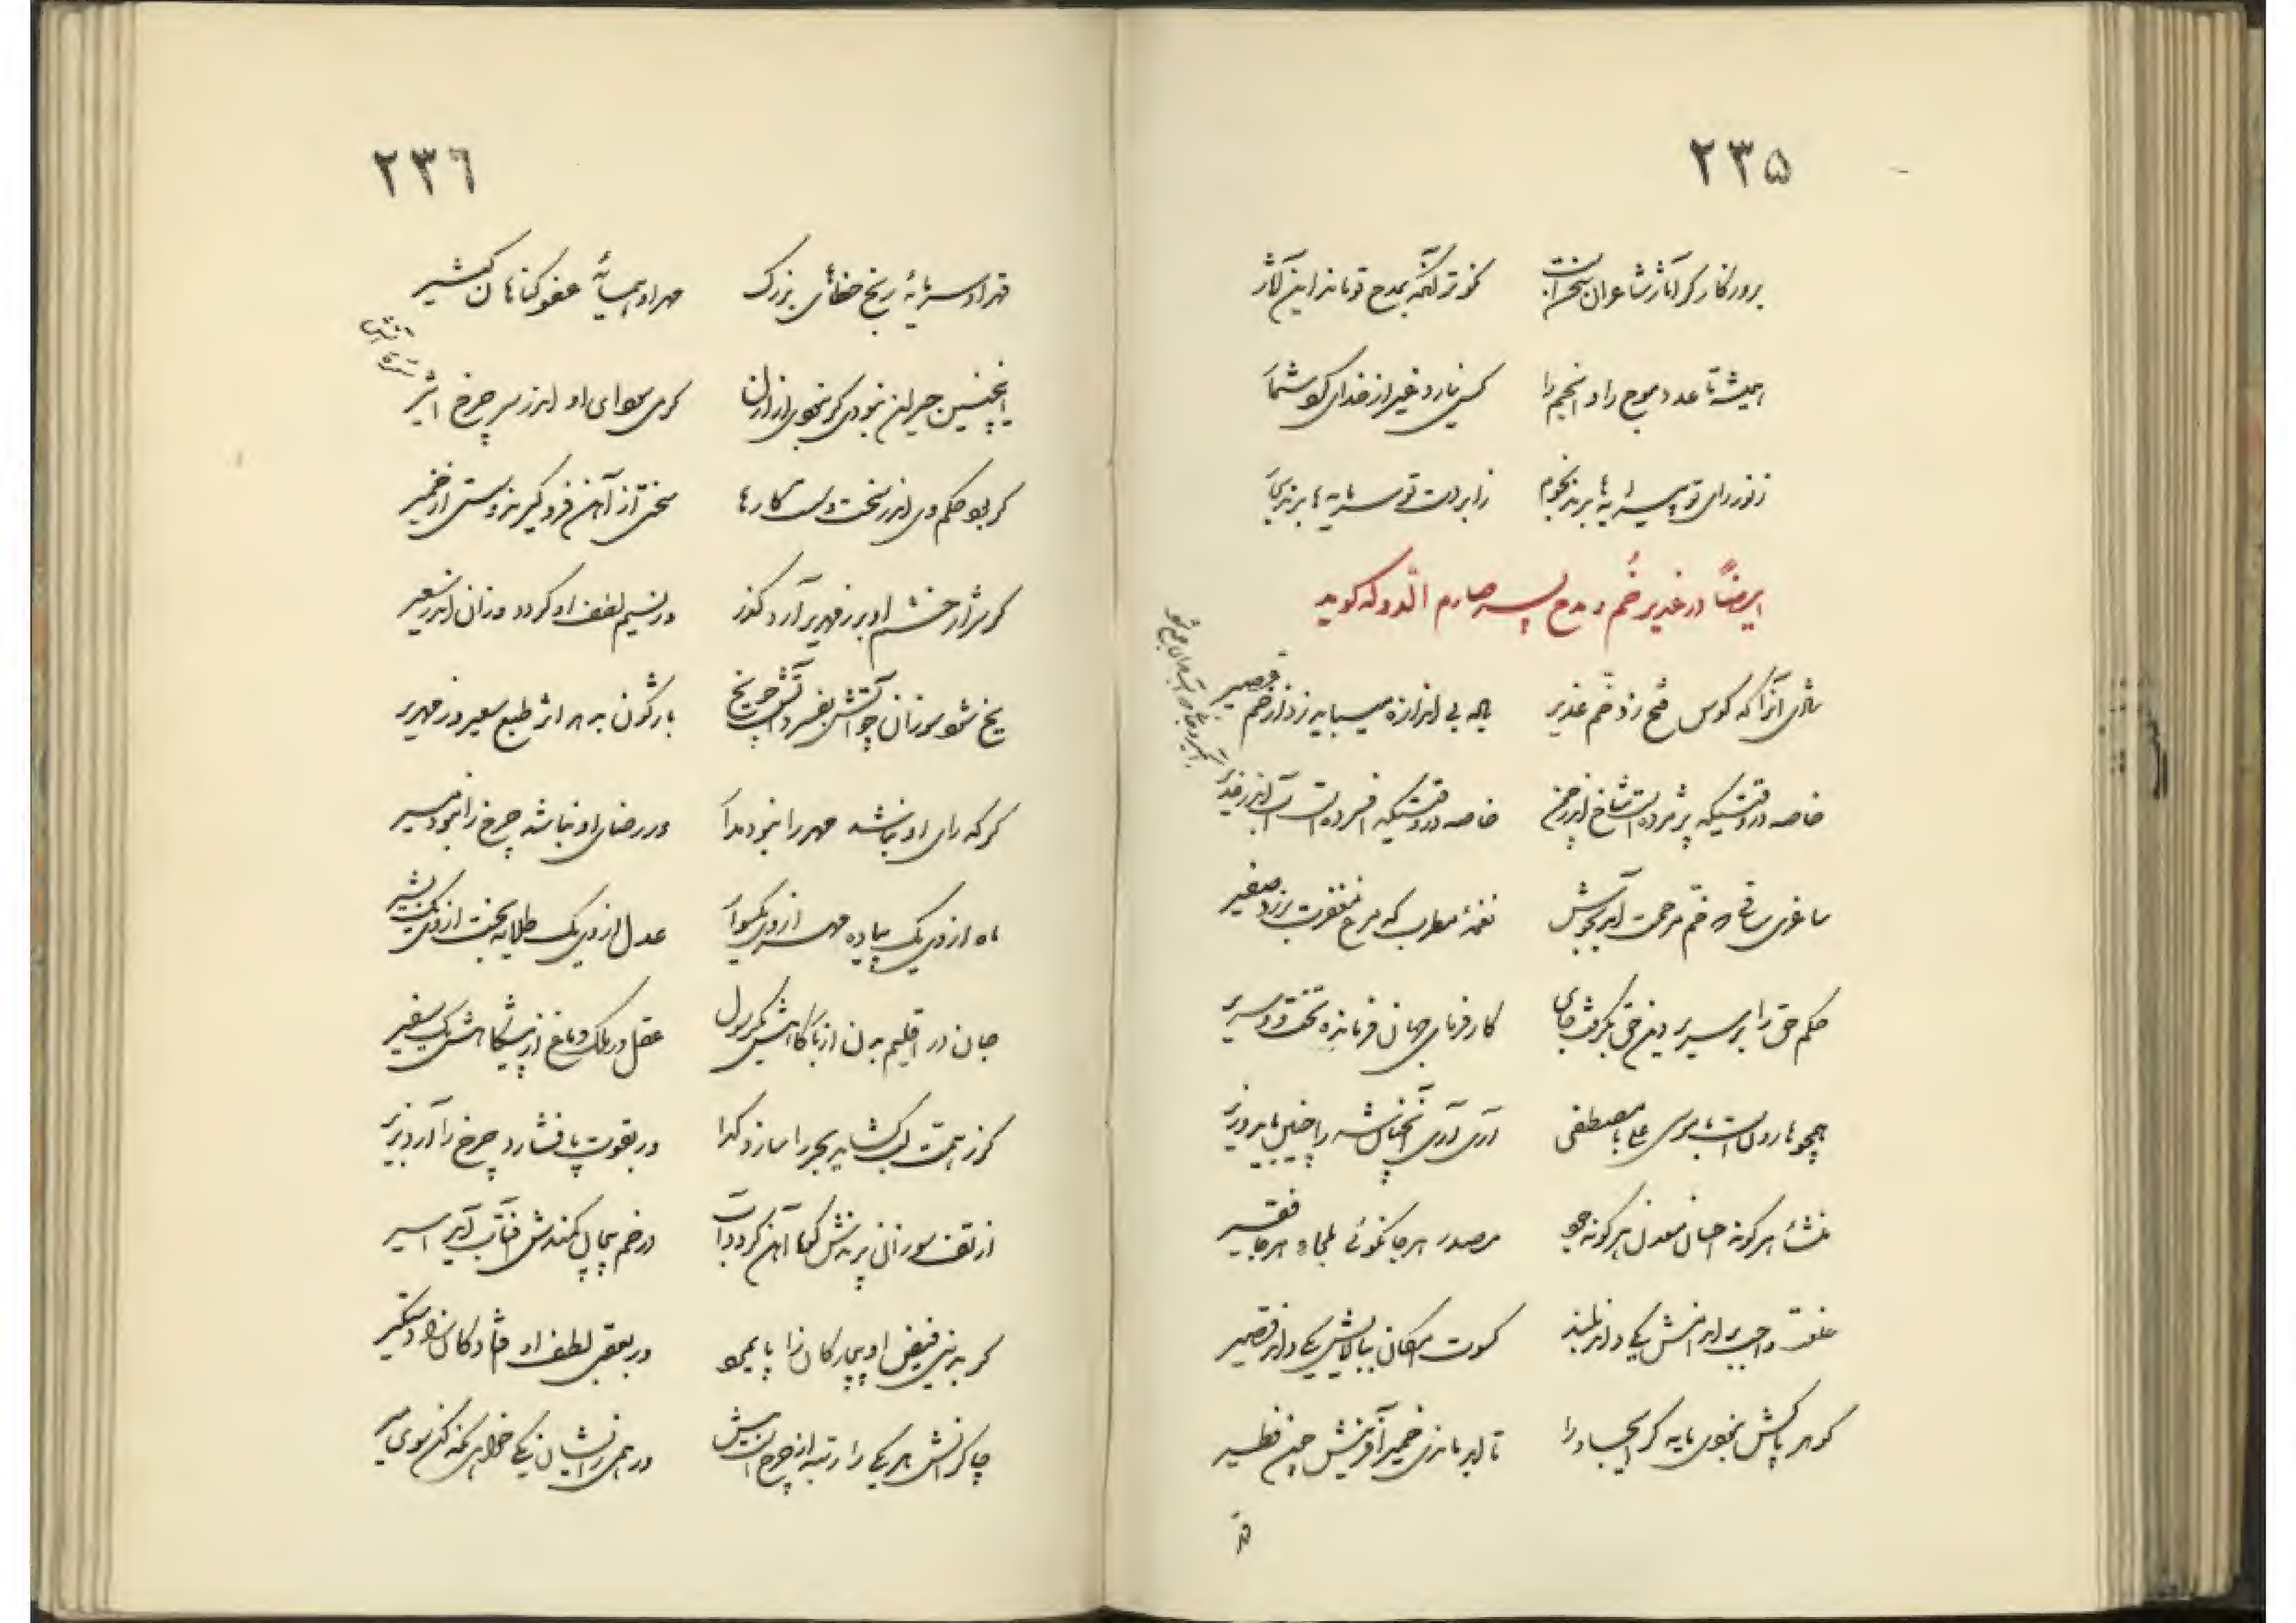 ۲۳۵
بروزگار گر آثار شاعران سخن است نکوتر آنکه بمدح تو ماند این آثار
همیشه تا عدد موج را و انجم را کس نیارد غیر از خدای کرد شمار
ز نور رای تو پیرایه‌ها برند نجوم ز ابر دست تو سرمایه‌ها برند بحار
ایضاً در غدیر خم و مدح پسر صارم الدوله گوید
ساقی آنرا که کوس فتح زد خم غدیر باده بی اندازه میباید زد از خم
خاصه در وقتیکه پژمرده است شاخ اندر چمن خاصه در وقتیکه افسرده است آب اندر غدیر
ساغری ساقی که خم مرحمت آمد بجوش نغمهٔ مطرب که مرغ مغفرت برزد صفیر
حکم حق را بر سریر دین حق بگرفت جای کارفرمای جهان فرمانده تخت و سریر
همچو هارون است با موسی علی با مصطفی آری آری آنچنان شه را چنین باید وزیر
منشاء هرگونه احسان معدن هرگونه جود مصدر هرجا نکوئی ملجاء هرجا فقیر
خلعت واجب بر اندامش یکی دان بلند کسوت امکان ببالایش یکی دان قصیر
گوهر پاکش نبودی مایه گر ایجاد را تا ابد ماندی ضمیر آفرینش چین
۲۳۶
قهر او سرمایهٔ رنج خطاهای بزرگ مهر او همسایهٔ عفو گناهان کثیر
اینچنین حیران نبودی گر نبودی از ازل گر هوای او اندر سر چرخ اثیر
گر بود حکم وی اندر سخت و سست کارها سختی از آهن فرو گیرند و سستی از خمیر
گر شرار خشم او بر زمهریر آرد گذر ور نسیم لطف او گردد وزان اندر سعیر
یخ شود سوزان چو آتش بفسرد آتش چو یخ باژگون بدهد اثر طبع سعیر و زمهریر
گر که رای او نباشد مهر را نبود مدار ور رضای او نباشد چرخ را نبود مسیر
ماه از وی یک پیاده مهر از وی یکسوار عدل از وی یک طلایه بخت از وی یک بشیر
جان در اقلیم بدن از بارگاهش یک رسول عقل در ملک دماغ از پیشگاهش یک سفیر
گر ز همت لب گشاید بحر را سازد گدا ور بقوت پا فشارد چرخ را آرد بزیر
از تف سوزانی پرندش کوه آهن گردد آب در خم پیچان کمندش آفتاب آید اسیر
گر بدی فیض او بیچارگان را پایمرد ور بعقبی لطف او افتادگان را دستگیر
چاکرانش هر یکی را رتبه از چرخ است بیش